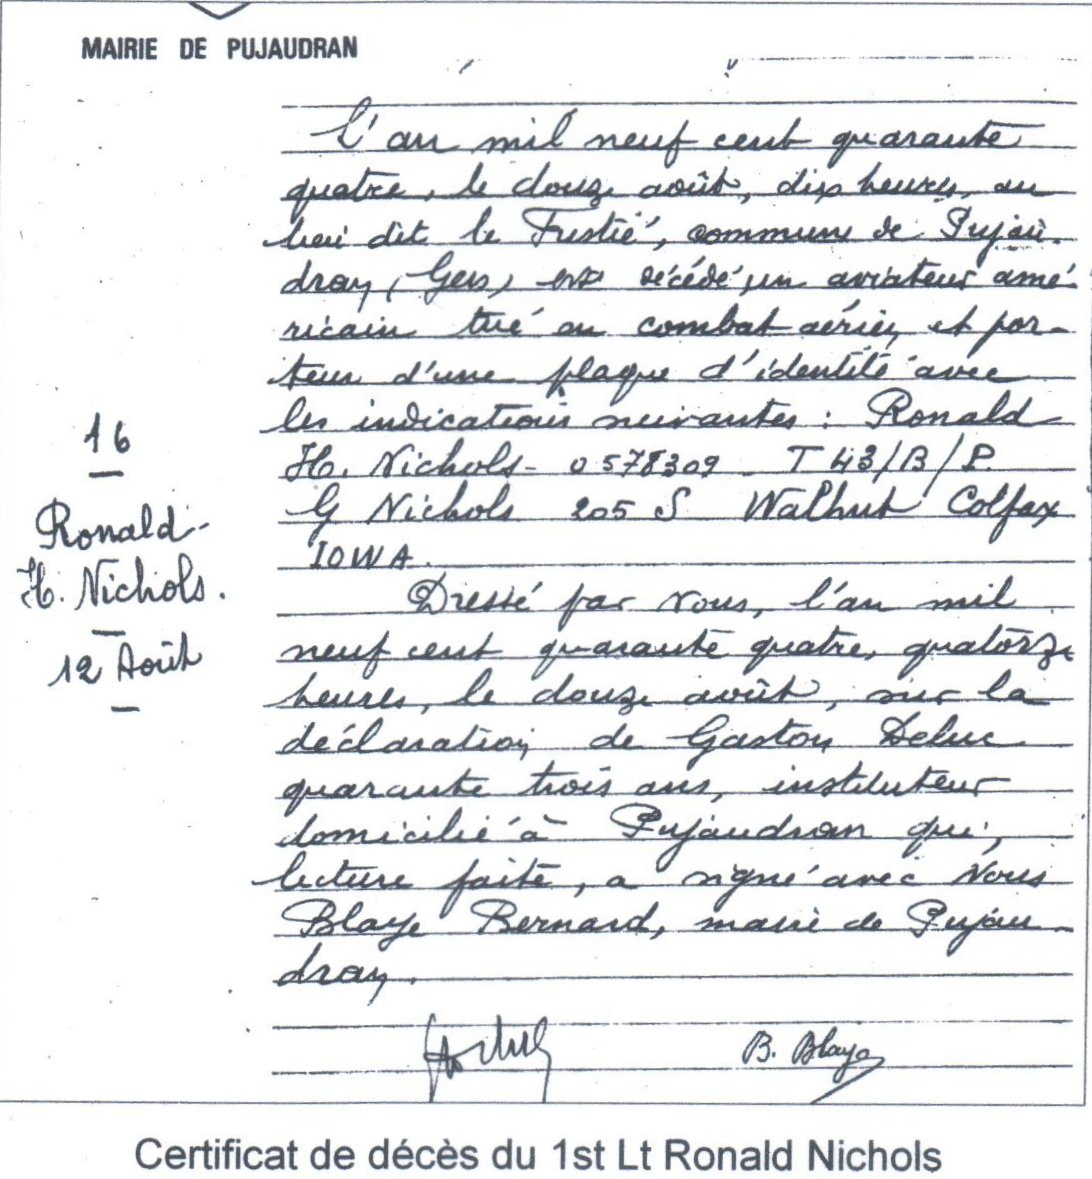 MAIRIE DE PUJAUDRAN
L'an mil neuf cent quarante
quatre, le douze août, dix heures, au
lieu dit le Fustié, commune de Pujau-
dran (Gers) est décédé, un aviateur amé-
ricain tué en combat aérien, et por-
teur d'une plaque d'identité avec
les indications suivantes : Ronald
H. Nichols - 0578309 - T 43/B/P.
G Nichols 205 S Walhut Colfax
IOWA.
Dressé par nous, l'an mil
neuf cent quarante quatre, quatorze
heures, le douze août, sur la
déclaration de Gaston Deluc
quarante trois ans, instituteur
domicilié à Pujaudran qui,
lecture faite, a signé avec Nous
Blaye Bernard, maire de Pujau-
dran.
16
Ronald
H. Nichols.
12 Août
B. Blaye
Certificat de décès du 1st Lt Ronald Nichols